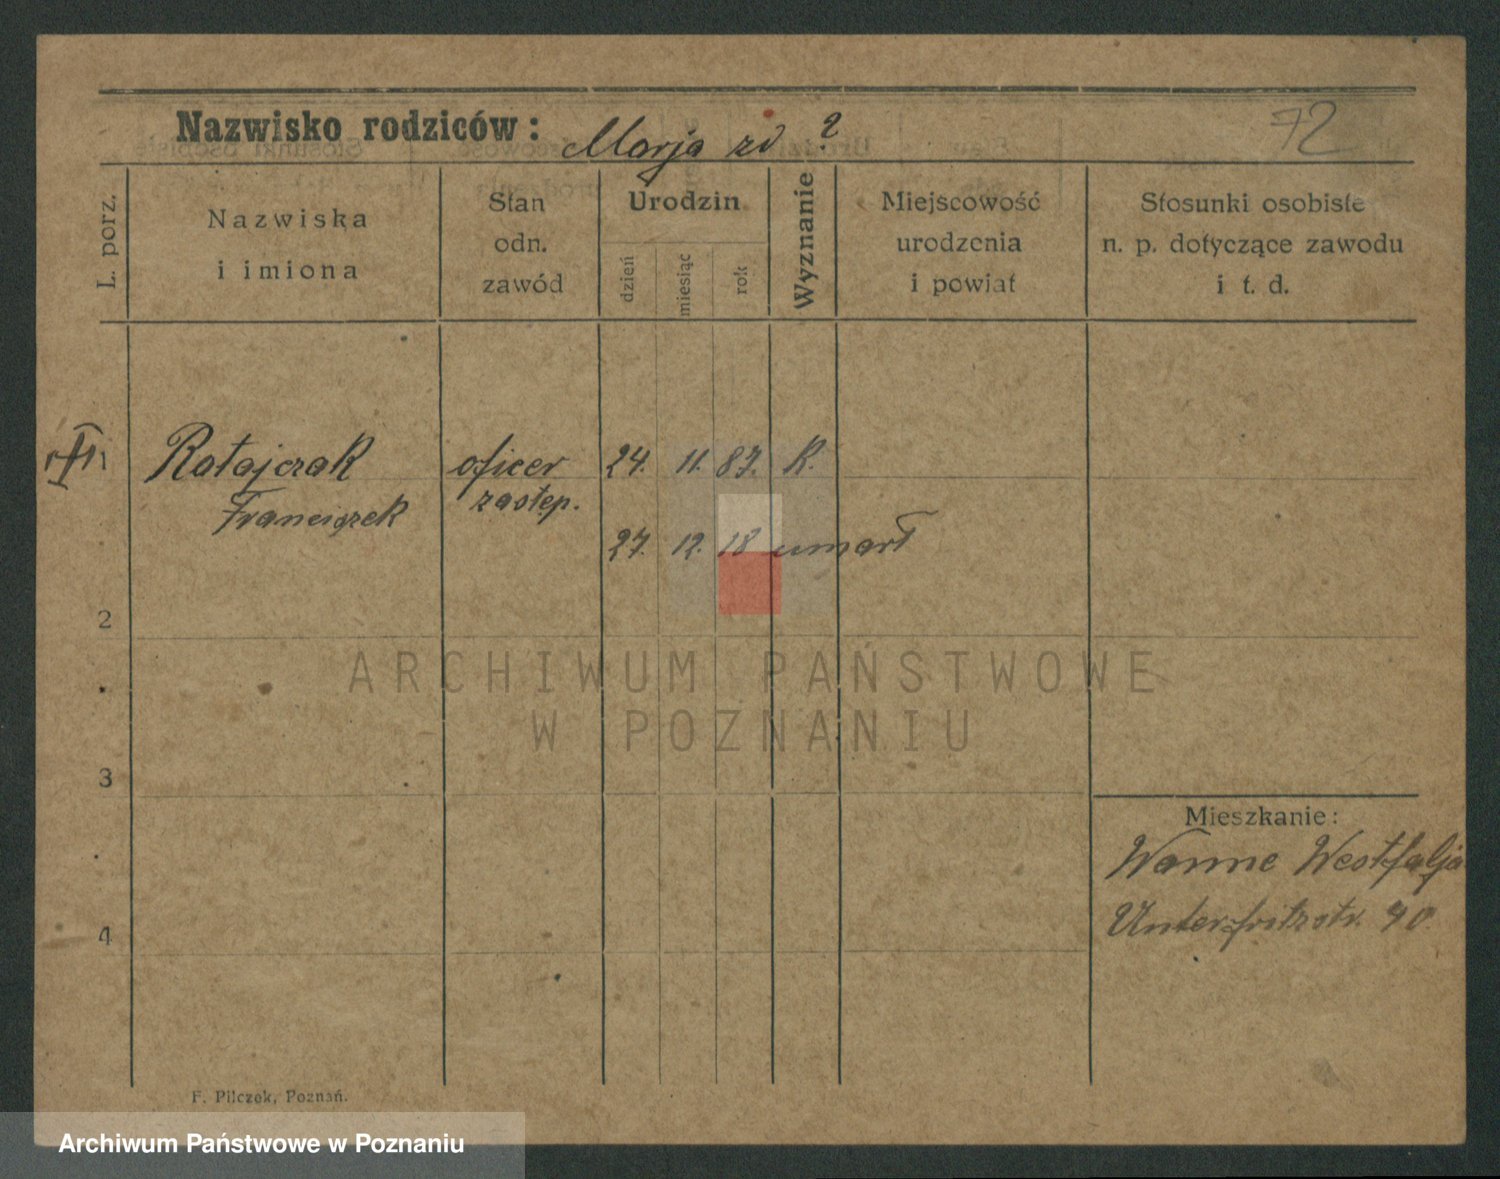 Nazwisko rodziców: Marja zd ?
72
L. porz.
Nazwiska
i imiona
Stan
odn.
zawód
Urodzin
dzień
miesiąc
rok
Wyznanie
Miejscowość
urodzenia
i powiat
Stosunki osobiste
n. p. dotyczące zawodu
i t. d.
1 Ratajczak oficer 24. 11. 87. K.
Franciszek zastęp.
27. 12. 18 umarł
2
3
4
Mieszkanie:
Wanne Westfalja
Unterfritzstr. 40.
F. Pilczek, Poznań.
ARCHIWUM PAŃSTWOWE
W POZNANIU
Archiwum Państwowe w Poznaniu